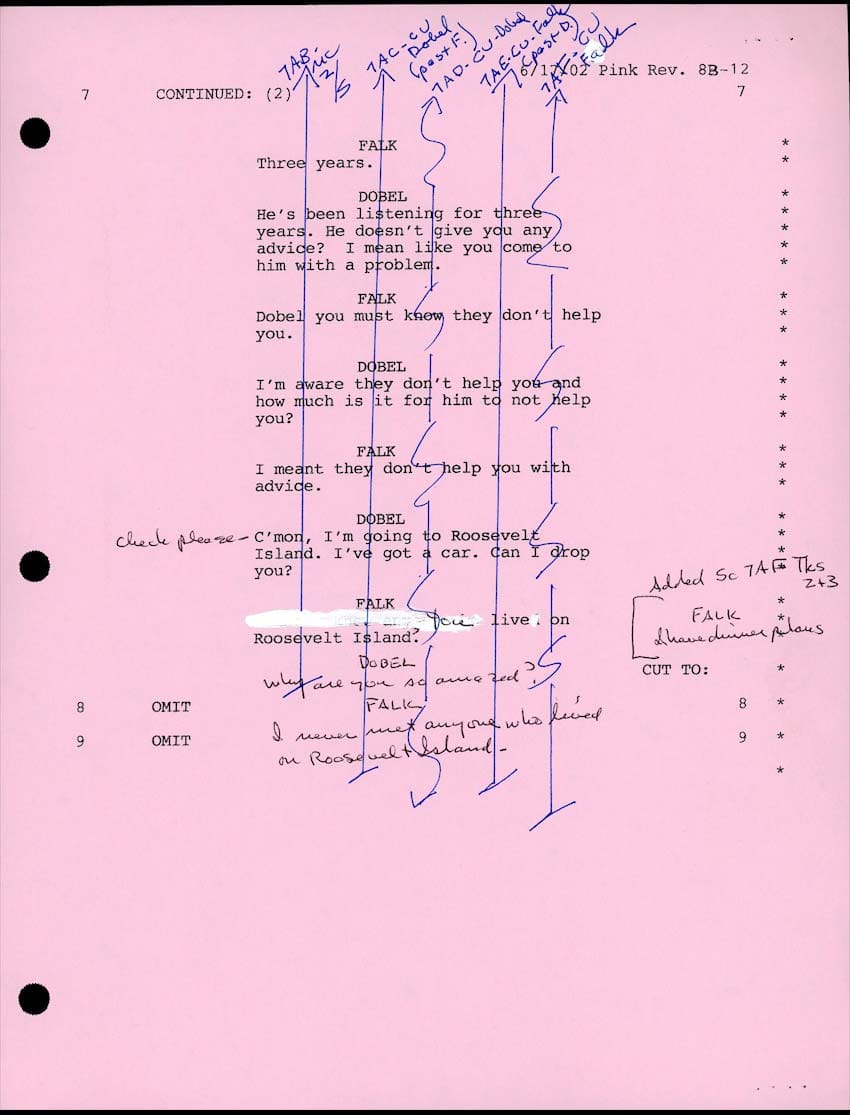 7AB- mc 2/S
7AC-CU Dobel (past F.)
7AD-CU-Dobel
7AE-CU-Falk (past D.)
7AF-CU Falk
6/17/02 Pink Rev. 8B-12
7 CONTINUED: (2) 7
FALK *
Three years. *
DOBEL *
He's been listening for three *
years. He doesn't give you any *
advice? I mean like you come to *
him with a problem. *
FALK *
Dobel you must know they don't help *
you. *
DOBEL *
I'm aware they don't help you and *
how much is it for him to not help *
you? *
FALK *
I meant they don't help you with *
advice. *
DOBEL *
check please- C'mon, I'm going to Roosevelt *
Island. I've got a car. Can I drop *
you? *
Added Sc 7AF Tks 2+3
FALK *
You live on *
Roosevelt Island? *
FALK
I have dinner plans
DOBEL
Why are you so amazed?
CUT TO: *
FALK
8 OMIT 8 *
I never met anyone who lived
9 OMIT 9 *
on Roosevelt Island-
*